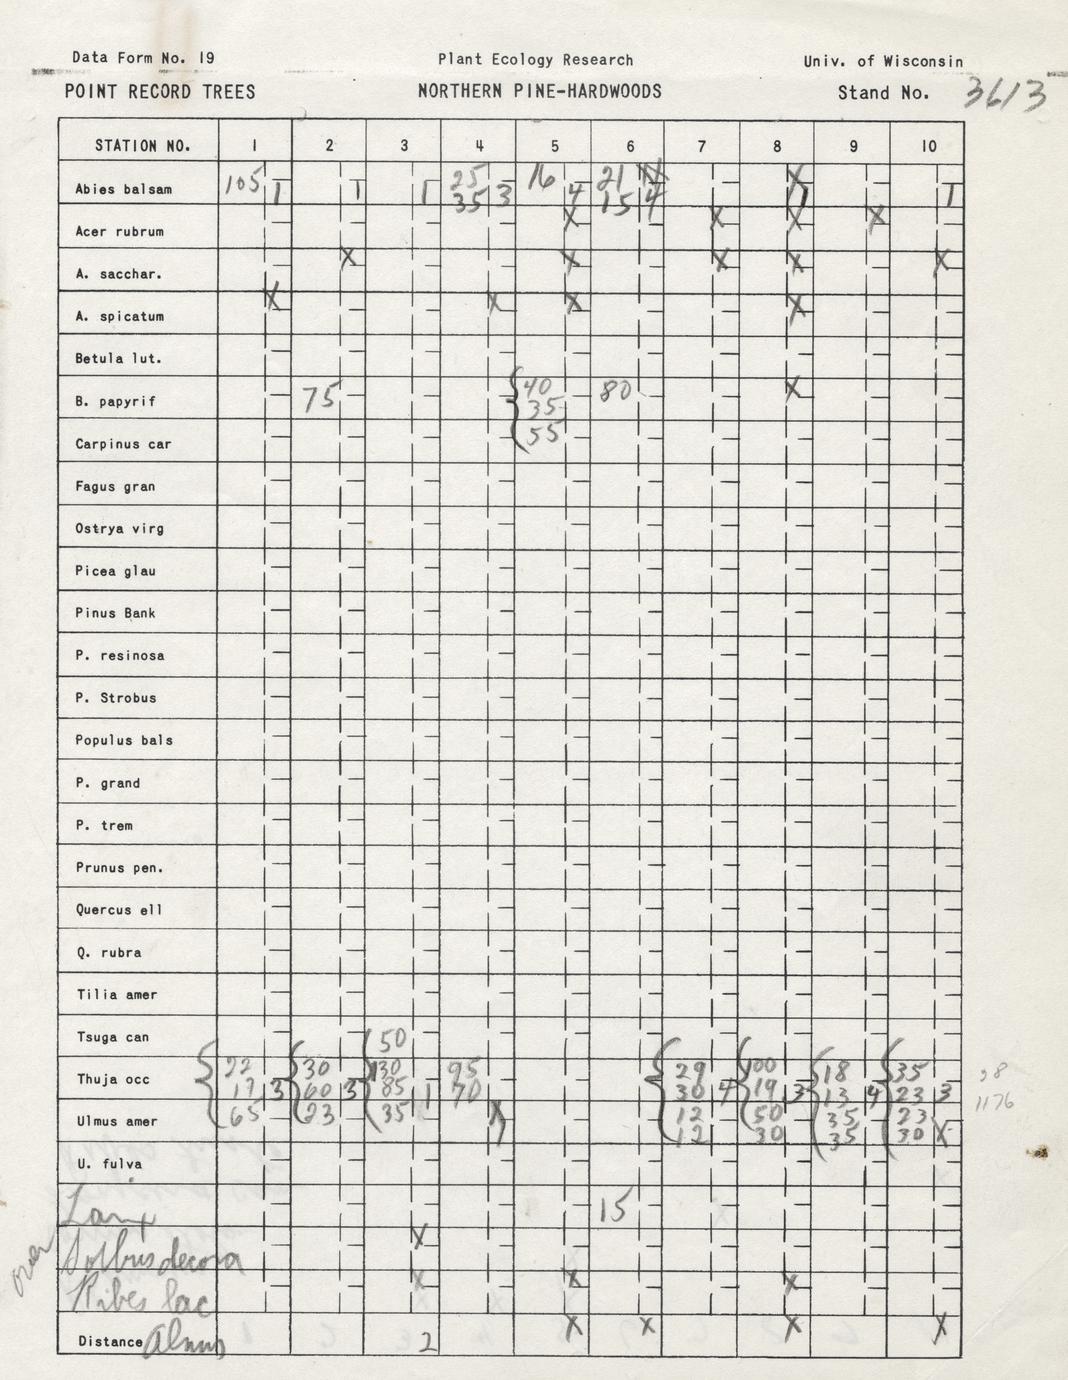 Data Form No. 19 Plant Ecology Research Univ. of Wisconsin
POINT RECORD TREES NORTHERN PINE-HARDWOODS Stand No. 3613
STATION NO. 1 2 3 4 5 6 7 8 9 10
Abies balsam 105 1 1 1 25 35 3 16 4 21 15 4 X 1 1
Acer rubrum X X X X
A. sacchar. X X X X X
A. spicatum X X X X
Betula lut.
B. papyrif 75 40 35 55 80 X
Carpinus car
Fagus gran
Ostrya virg
Picea glau
Pinus Bank
P. resinosa
P. Strobus
Populus bals
P. grand
P. trem
Prunus pen.
Quercus ell
Q. rubra
Tilia amer
Tsuga can 50
Thuja occ 22 17 65 3 30 60 23 3 130 85 35 1 95 70 29 30 12 12 4 100 19 50 30 3 18 13 35 35 4 35 23 23 30 3
1176
Ulmus amer X X
U. fulva
Larix 15
over
Sorbus decora X
Ribes lac X X X
Distance Alnus 2 X X X X